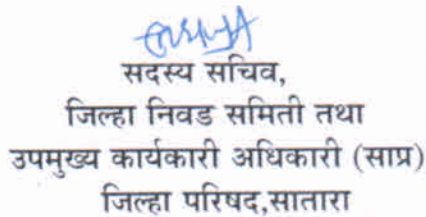 सदस्य सचिव,
जिल्हा निवड समिती तथा
उपमुख्य कार्यकारी अधिकारी (साप्र)
जिल्हा परिषद,सातारा